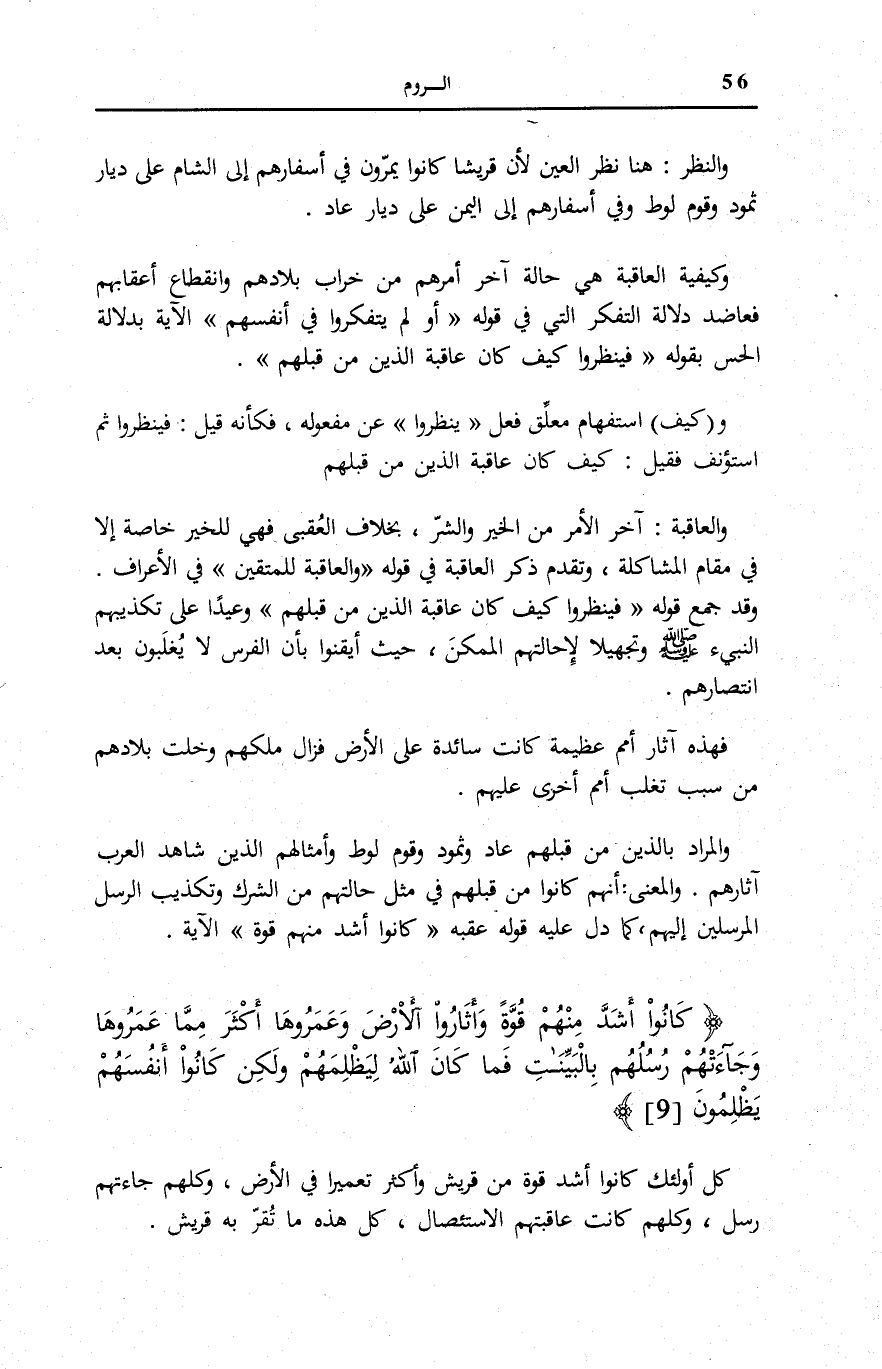 56
الـــروم
والنظر : هنا نظر العين لأن قريشا كانوا يمرّون في أسفارهم إلى الشام على ديار
ثمود وقوم لوط وفي أسفارهم إلى اليمن على ديار عاد .
وكيفية العاقبة هي حالة آخر أمرهم من خراب بلادهم وانقطاع أعقابهم
فعاضد دلالة التفكر التي في قوله « أو لم يتفكروا في أنفسهم » الآية بدلالة
الحس بقوله « فينظروا كيف كان عاقبة الذين من قبلهم » .
و(كيف) استفهام معلِّق فعل « ينظروا » عن مفعوله ، فكأنه قيل : فينظروا ثم
استؤنف فقيل : كيف كان عاقبة الذين من قبلهم
والعاقبة : آخر الأمر من الخير والشرّ ، بخلاف العُقبى فهي للخير خاصة إلا
في مقام المشاكلة ، وتقدم ذكر العاقبة في قوله «والعاقبة للمتقين » في الأعراف .
وقد جمع قوله « فينظروا كيف كان عاقبة الذين من قبلهم » وعيدًا على تكذيبهم
النبيء ﷺ وتجهيلا لإحالتهم الممكنَ ، حيث أيقنوا بأن الفرس لا يُغلَبون بعد
انتصارهم .
فهذه آثار أمم عظيمة كانت سائدة على الأرض فزال ملكهم وخلت بلادهم
من سبب تغلب أمم أخرى عليهم .
والمراد بالذين من قبلهم عاد وثمود وقوم لوط وأمثالهم الذين شاهد العرب
آثارهم . والمعنى:أنهم كانوا من قبلهم في مثل حالتهم من الشرك وتكذيب الرسل
المرسلين إليهم،كما دل عليه قوله عقبه « كانوا أشد منهم قوة » الآية .
﴿ كَانُواْ أَشَدَّ مِنْهُمْ قُوَّةً وَأَثَارُواْ ٱلْأَرْضَ وَعَمَرُوهَا أَكْثَرَ مِمَّا عَمَرُوهَا
وَجَآءَتْهُمْ رُسُلُهُم بِالْبَيِّنَٰتِ فَما كَانَ ٱللهُ لِيَظْلِمَهُمْ ولَٰكِن كَانُواْ أَنفُسَهُمْ
يَظْلِمُونَ [9] ﴾
كل أولئك كانوا أشد قوة من قريش وأكثر تعميرا في الأرض ، وكلهم جاءتهم
رسل ، وكلهم كانت عاقبتهم الاستئصال ، كل هذه ما تُقرّ به قريش .